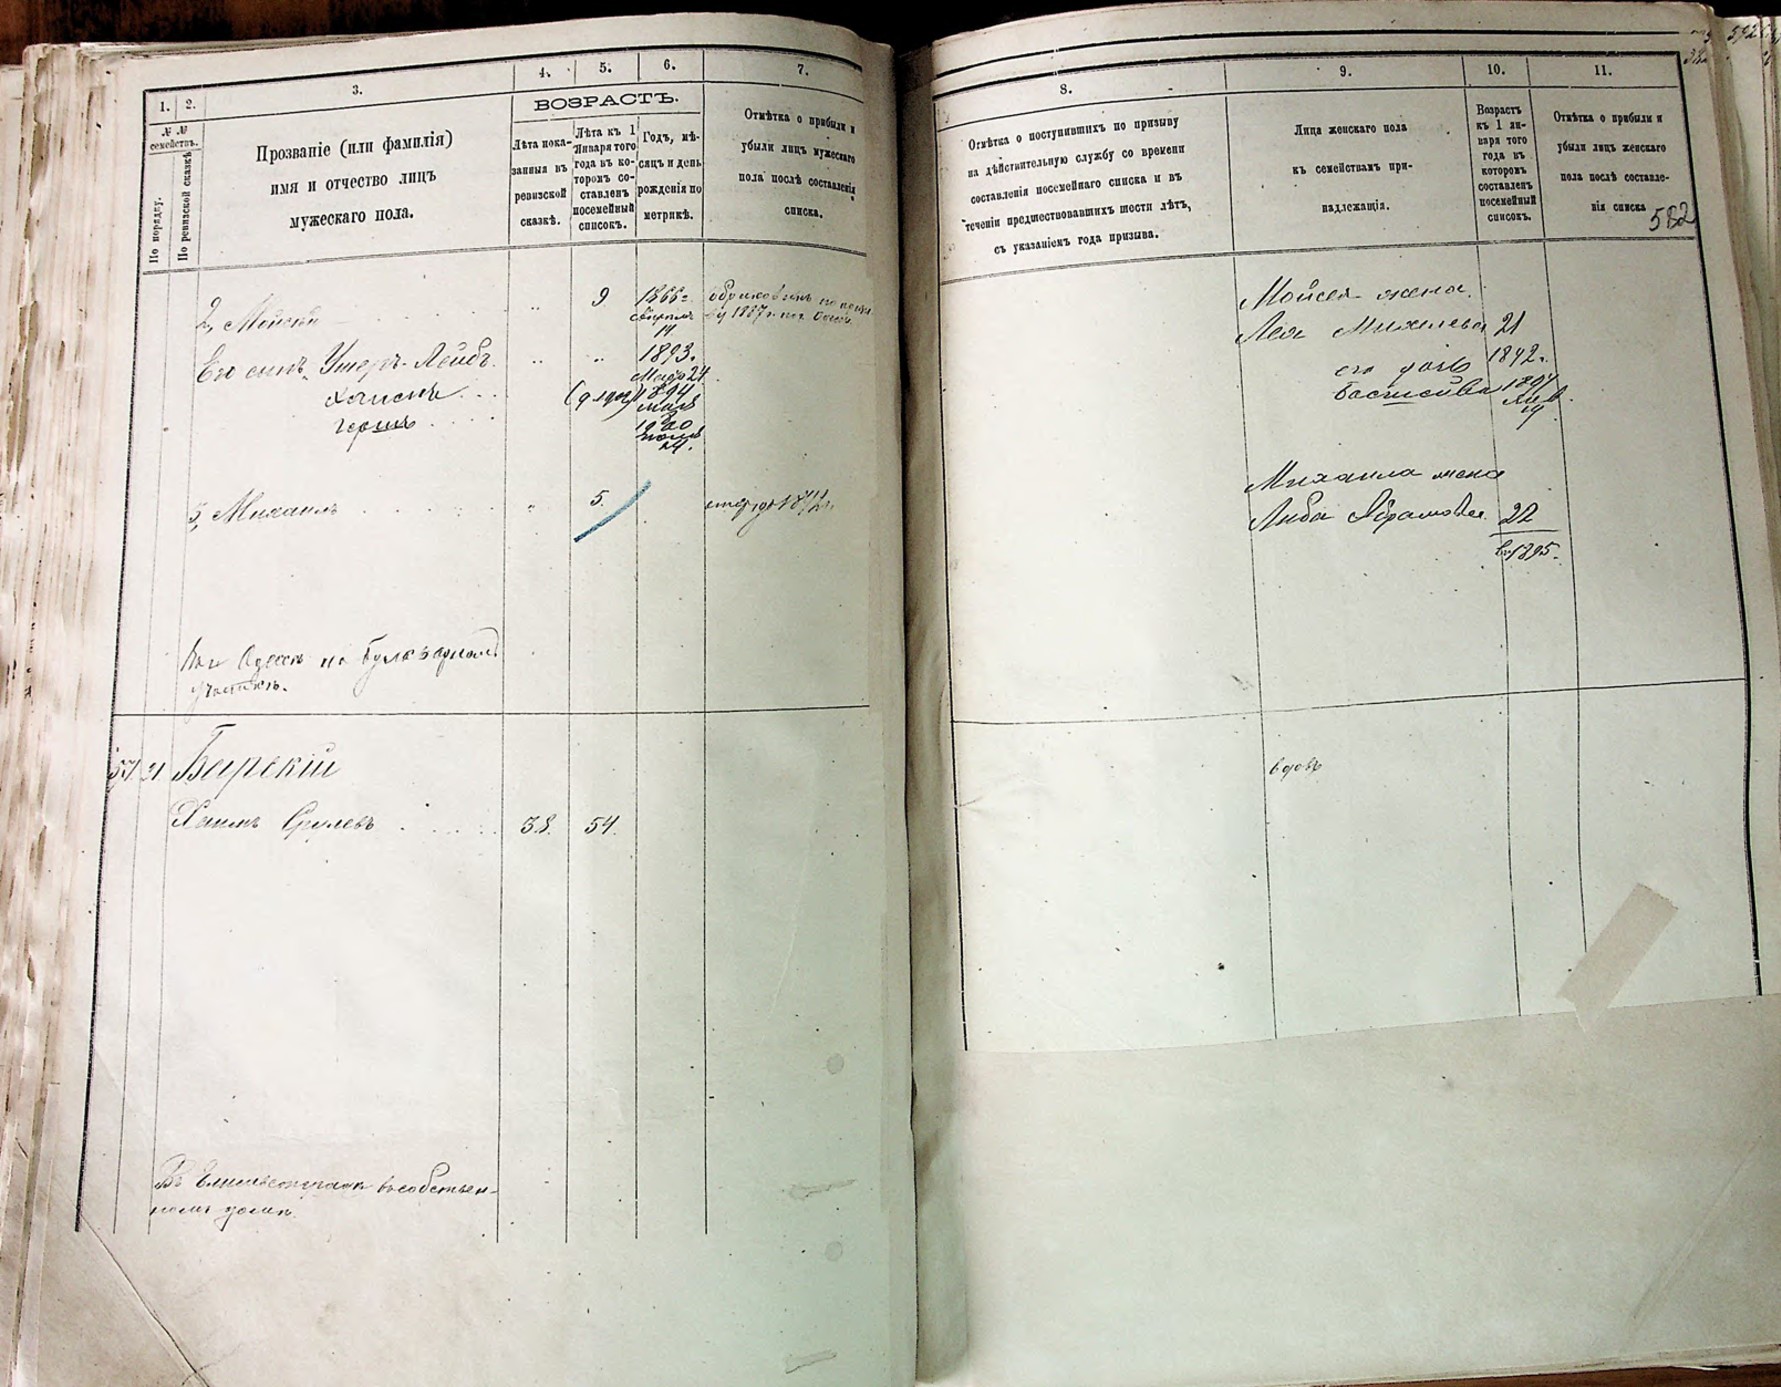 1. 2. 3. 4. 5. 6. 7.
№ №
семействъ.
По порядку.
По ревизской сказкѣ
Прозваніе (или фамилія)
имя и отчество лицъ
мужескаго пола.
ВОЗРАСТЪ.
Лѣта пока-
занныя въ
ревизской
сказкѣ.
Лѣта къ 1
Января того
года въ ко-
торомъ со-
ставленъ
посемейный
списокъ.
Годъ, мѣ-
сяцъ и день
рожденія по
метрикѣ.
Отмѣтка о прибыли и
убыли лицъ мужескаго
пола послѣ составленія
списка.
2, Мойсей 9
1893.
Его сынъ Ушеръ-Лейбъ.
1894
Герш
24.
Михаилъ 5.
Одессѣ на Бульварномъ
участкѣ.
57 21 Барскій
Хаимъ Срулевъ 38. 54.
Въ Елисаветградѣ въ собствен-
номъ домѣ
8. 9. 10. 11.
Отмѣтка о поступившихъ по призыву
на дѣйствительную службу со времени
составленія посемейнаго списка и въ
теченіи предшествовавшихъ шести лѣтъ,
съ указаніемъ года призыва.
Лица женскаго пола
къ семействамъ при-
надлежащія.
Возрастъ
къ 1 ян-
варя того
года въ
которомъ
составленъ
посемейный
списокъ.
Отмѣтка о прибыли и
убыли лицъ женскаго
пола послѣ составле-
нія списка
582
Мойсея жена
Лея Михелева 21
его дочь 1892.
Михаила жена
Либа Абрамова 22
1895.
вдовъ